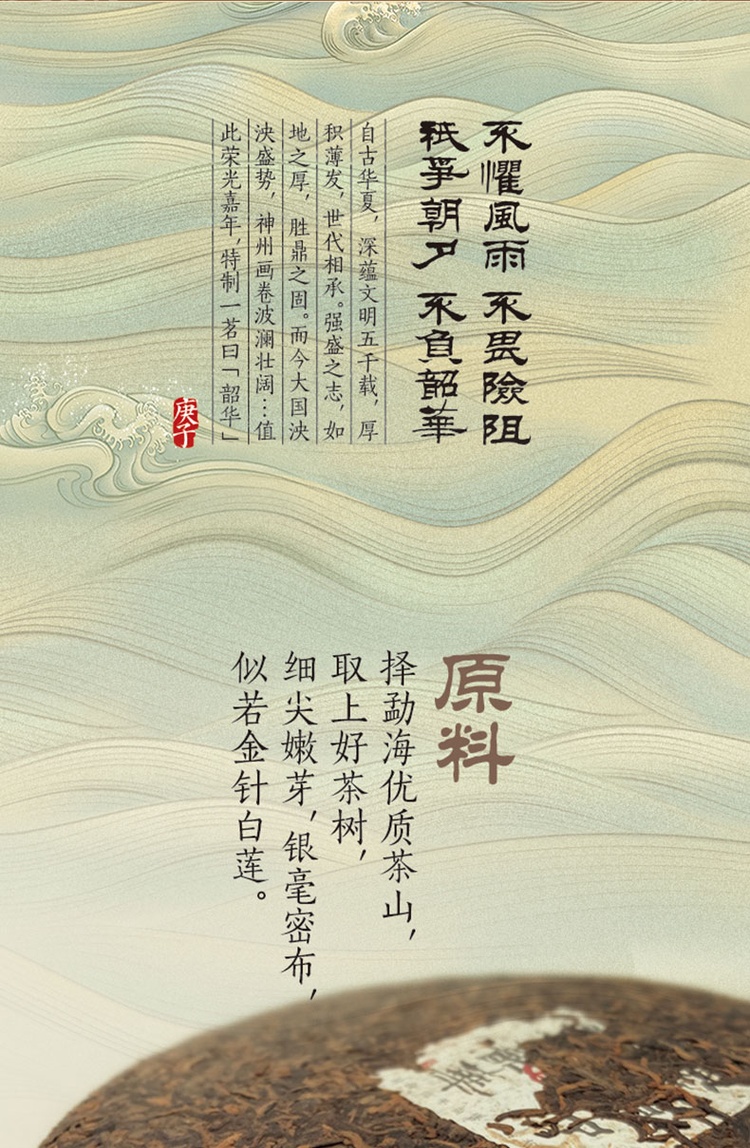 不懼風雨 不畏險阻
祇爭朝夕 不負韶華
自古华夏，深蕴文明五千载，厚
积薄发，世代相承。强盛之志，如
地之厚，胜鼎之固。而今大国泱
泱盛势，神州画卷波澜壮阔…值
此荣光嘉年，特制一茗曰「韶华」
庚子
原料
择勐海优质茶山，
取上好茶树，
细尖嫩芽，银毫密布，
似若金针白莲。